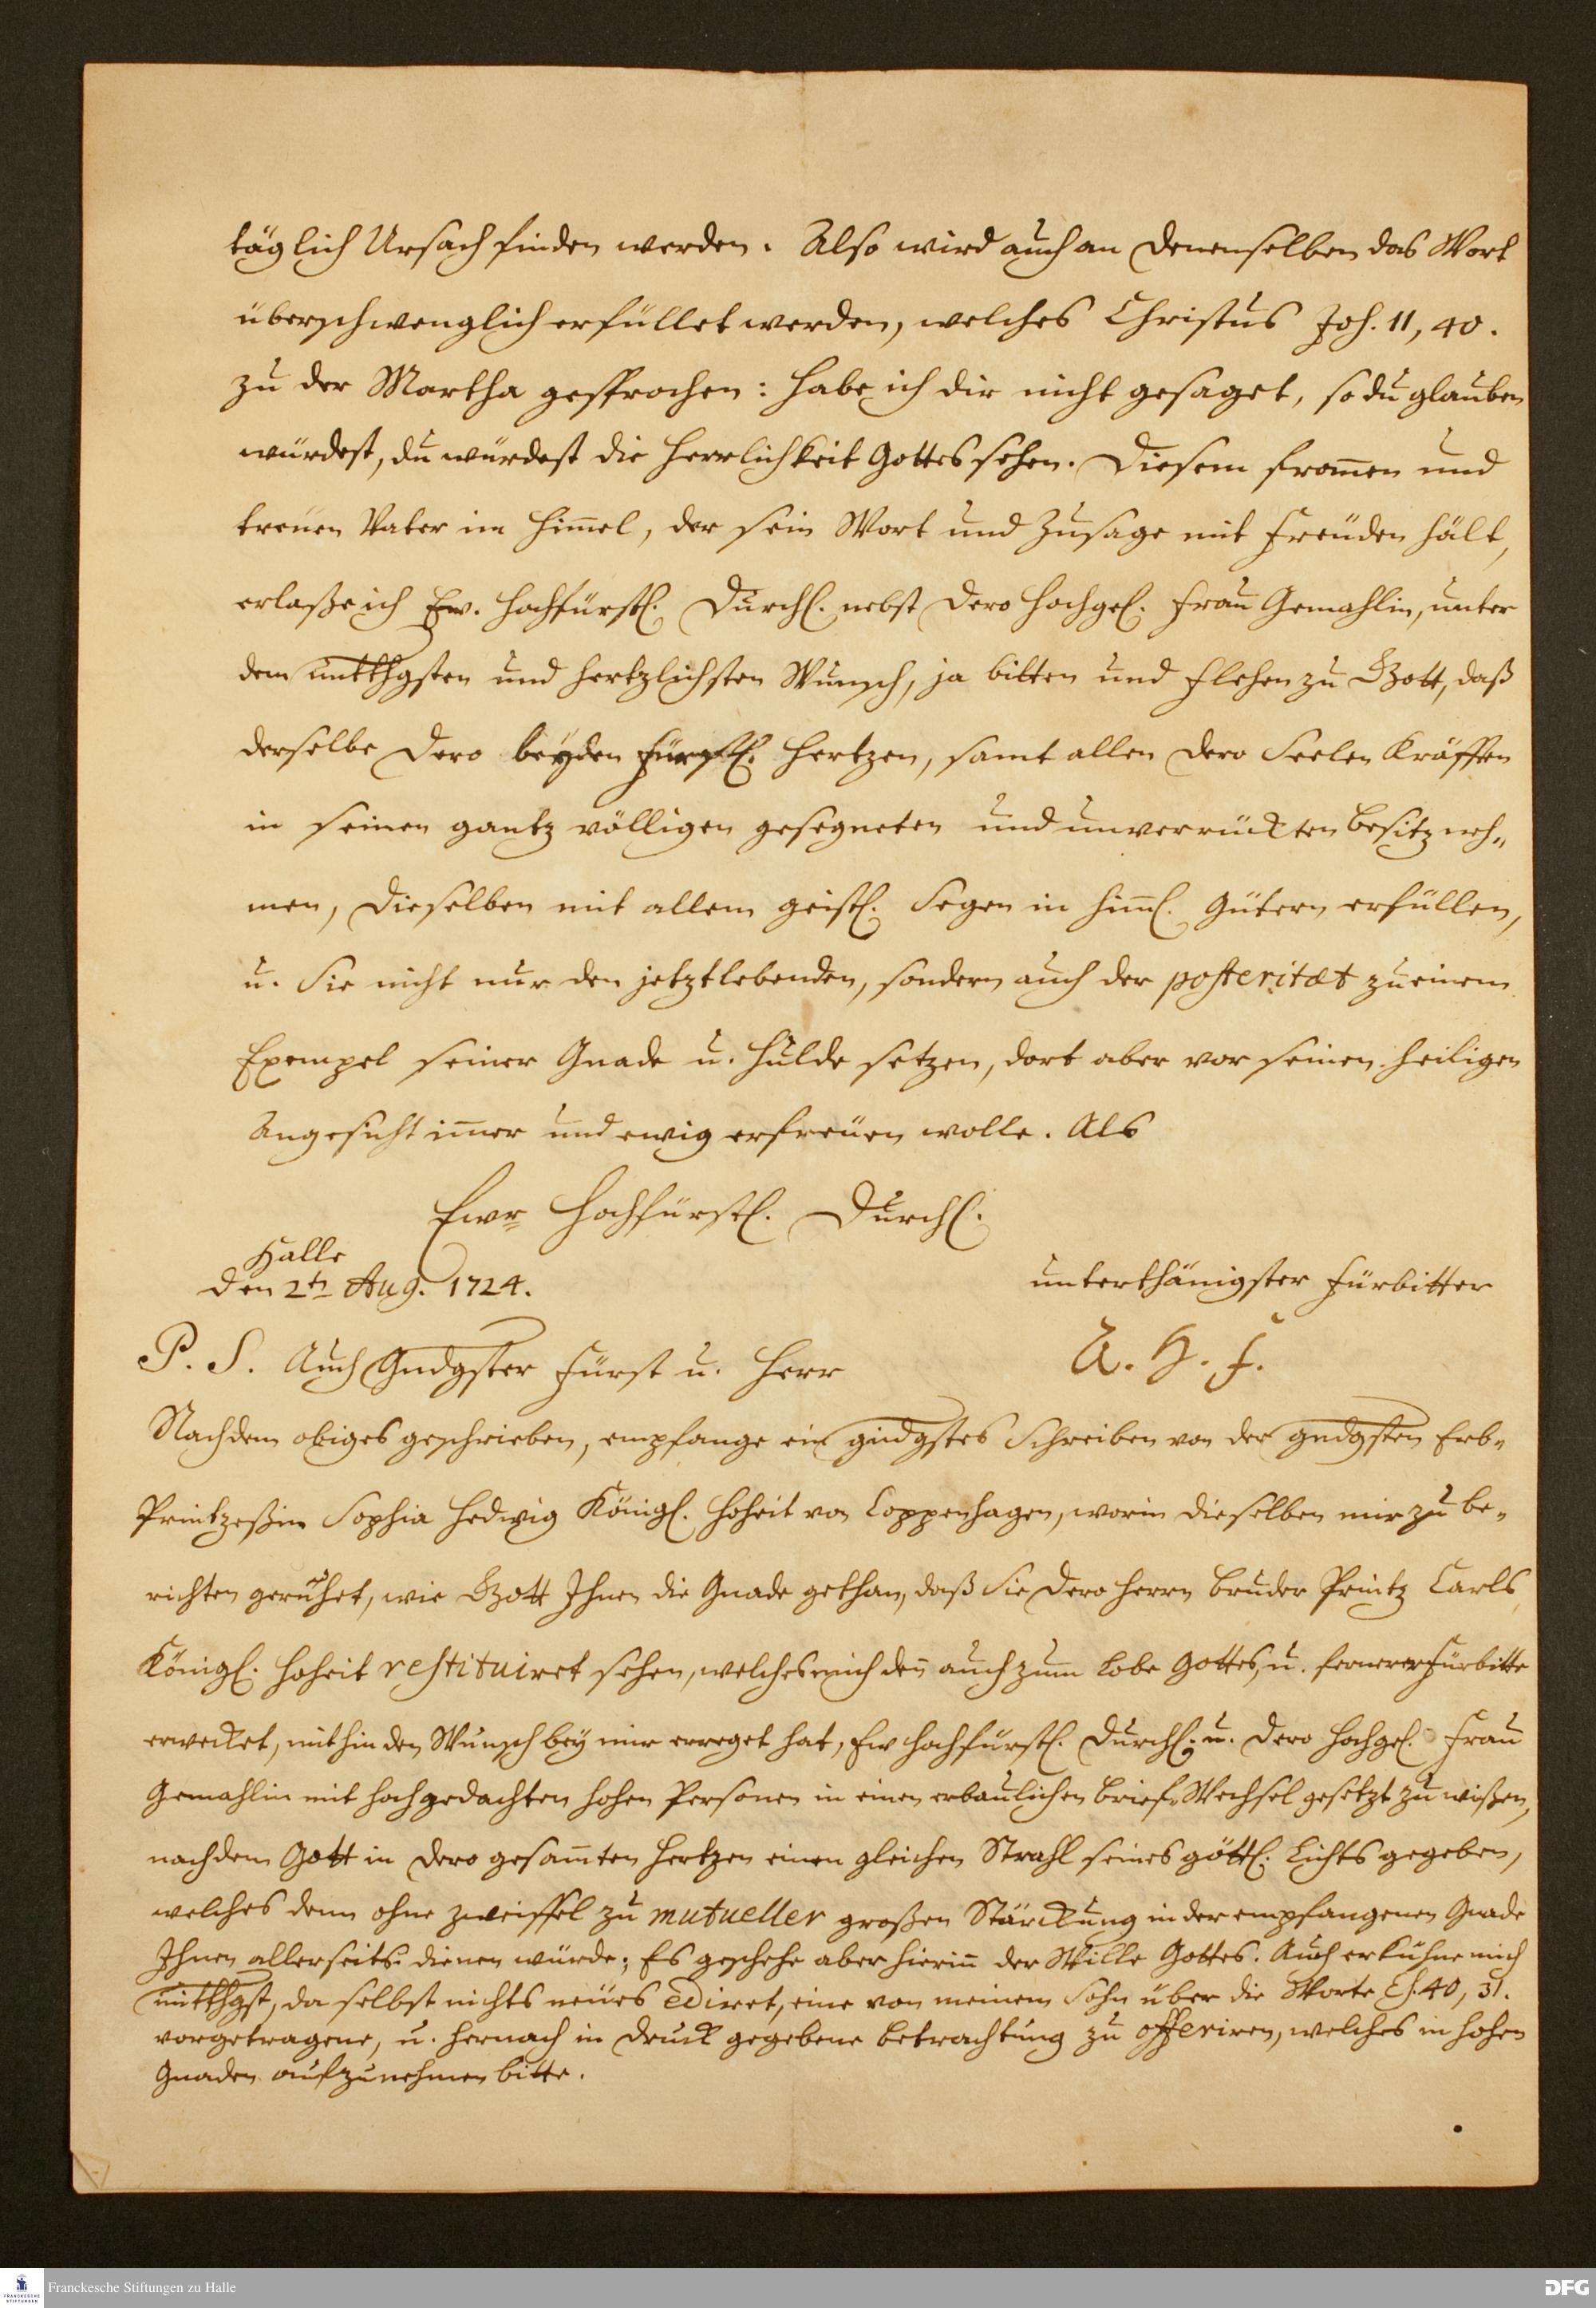 täglich Ursach finden werden. Also wird auch an Denenselben das Wort
überschwenglich erfüllet werden, welches Christus Joh. 11, 40.
zu der Martha gesprochen: habe ich dir nicht gesaget, so du glauben
würdest, du würdest die Herrlichkeit Gottes sehen. Diesem from̄en und
treuen Vater im Him̄el, der sein Wort und Zusage mit Freuden hält,
erlaße ich Ew. Hochfürstl. Durchl. nebst Dero Hochgel. Frau Gemahlin, unter
dem untthgsten und hertzlichsten Wunsch, ja bitten und flehen zu Gott, daß
derselbe Dero beyden Fürstl. Hertzen, samt allen Dero Seelen Kräfften
in seinen gantz völligen gesegneten und unverrückten Besitz neh-
men, Dieselben mit allem geistl. Segen in him̄l. Gütern erfüllen,
u. Sie nicht nur den jetztlebenden, sondern auch der posteritæt zu einem
Exempel seiner Gnade u. Hulde setzen, dort aber vor seinem heiligen
Angesicht im̄er und ewig erfreuen wolle. Als
Ewr Hochfürstl. Durchl.
Halle
den 2tn Aug. 1724.
unterthänigster Fürbitter
A. H. F.
P. S. Auch Gndgster Fürst u. Herr
Nachdem obiges geschrieben, empfange ein gndgstes Schreiben von der gndgsten Erb-
Printzeßin Sophia Hedwig Königl. Hoheit von Coppenhagen, worin dieselben mir zu be-
richten geruhet, wie Gott Ihnen die Gnade gethan, daß Sie Dero Herrn Bruder Printz Carls
Königl. Hoheit restituiret sehen, welches mich den̄ auch zum Lobe Gottes, u. fernerer Fürbitte
erwecket, mithin den Wunsch bey mir erreget hat, Ew Hochfürstl. Durchl. u. Dero Hochgel. Frau
Gemahlin mit hochgedachten hohen Personen in einen erbaulichen Brief-Wechsel gesetzt zu wißen,
nachdem Gott in Dero gesam̄ten Hertzen einen gleichen Strahl seines göttl. Lichts gegeben,
welches denn ohne zweiffel zu mutueller großen Stärckung in der empfangenen Gnade
Ihnen allerseits dienen würde; Es geschehe aber hierin̄ der Wille Gottes. Auch erkühne mich
untthgst, da selbst nichts neues ediret, eine von meinem Sohn über die Worte Es. 40, 31.
vorgetragene, u. hernach in Druck gegebene Betrachtung zu offeriren, welches in hohen
Gnaden aufzunehmen bitte.
FRANCKESCHE STIFTUNGEN
Franckesche Stiftungen zu Halle
DFG